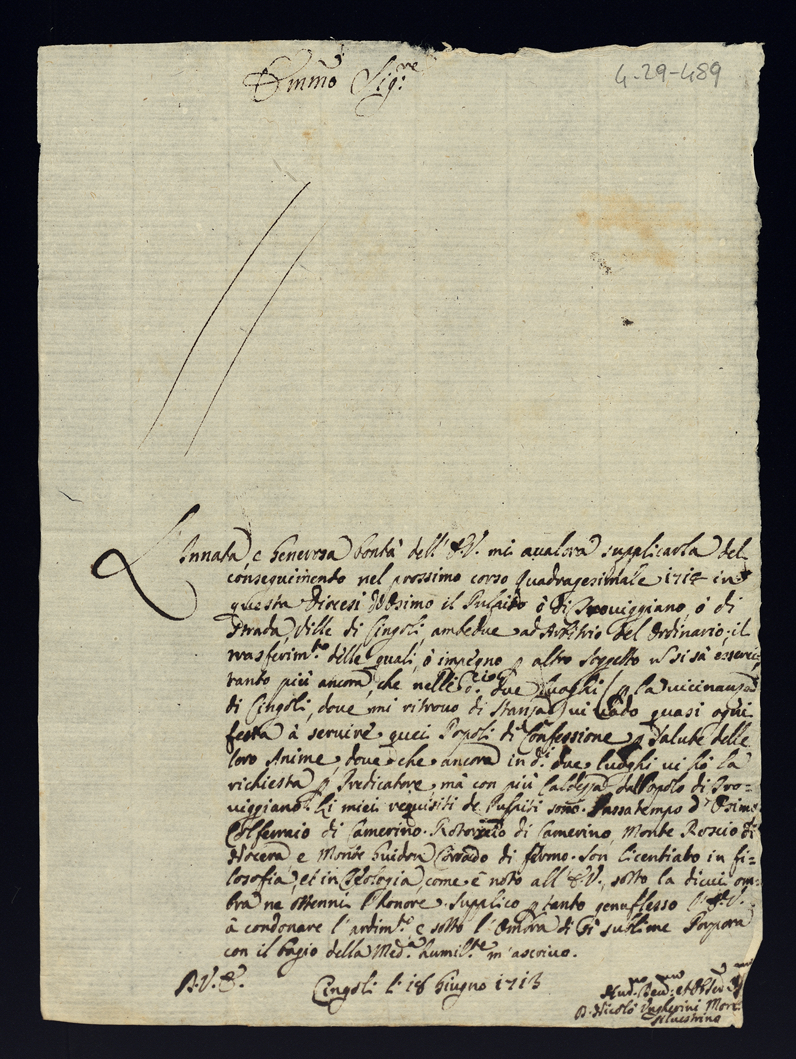 4-29-489
Emmo Sig.re
L'innata, e generosa bontà dell' E.V. mi avalora supplicarla del
conseguimento nel prossimo corso Quadragesimale 1714 in
questa Diocesi d'Osimo il Pulpito ò di Troviggiano, ò di
Strada, Ville di Cingoli, ambedue ad Arbitrio del Ordinario; il
trasferim.to delle quali, ò impegno p altro soggetto si sà
tanto più ancora, che nelli d. due Luoghi (p la vicinanza
di Cingoli, dove mi ritrovo di Stanza) vi vado quasi ogni
festa à servire quei Popoli di Confessione p salute delle
loro Anime, dove che ancora in d.i due luoghi vi fò la
richiesta p Predicatore, mà con più caldezza dal Popolo di Tro=
viggiano. Li miei requisiti de Pulpiti sono. Passatempo d'Osimo
Colferraio di Camerino. di Camerino, Monte Roscio di
Nocera e Monte Guidon Corrado di fermo. Son licentiato in fi=
losofia, et in Teologia, come è noto all' E.V., sotto la di cui om=
bra ne ottenni l'honore. Supplico p tanto genuflesso l'E.V.
à condonare l'ardim.to e sotto l'Ombra di Sì sublime Porpora
con il bagio della Med.a humil.te m'ascrivo.
D.V.E.
Cingoli li 18 Giugno 1713
D. Nicolò Ungherini Mon.
Silvestrino